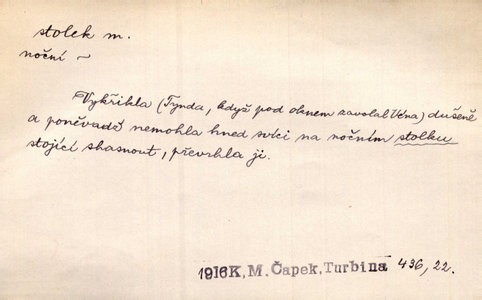 stolek m.
noční ~
Vykřikla (Tynda, když pod oknem zavolal Véna) dušeně
a poněvadž nemohla hned svíci na nočním stolku
stojící shasnout, převrhla ji.
1916K, M. Čapek, Turbina 436, 22.